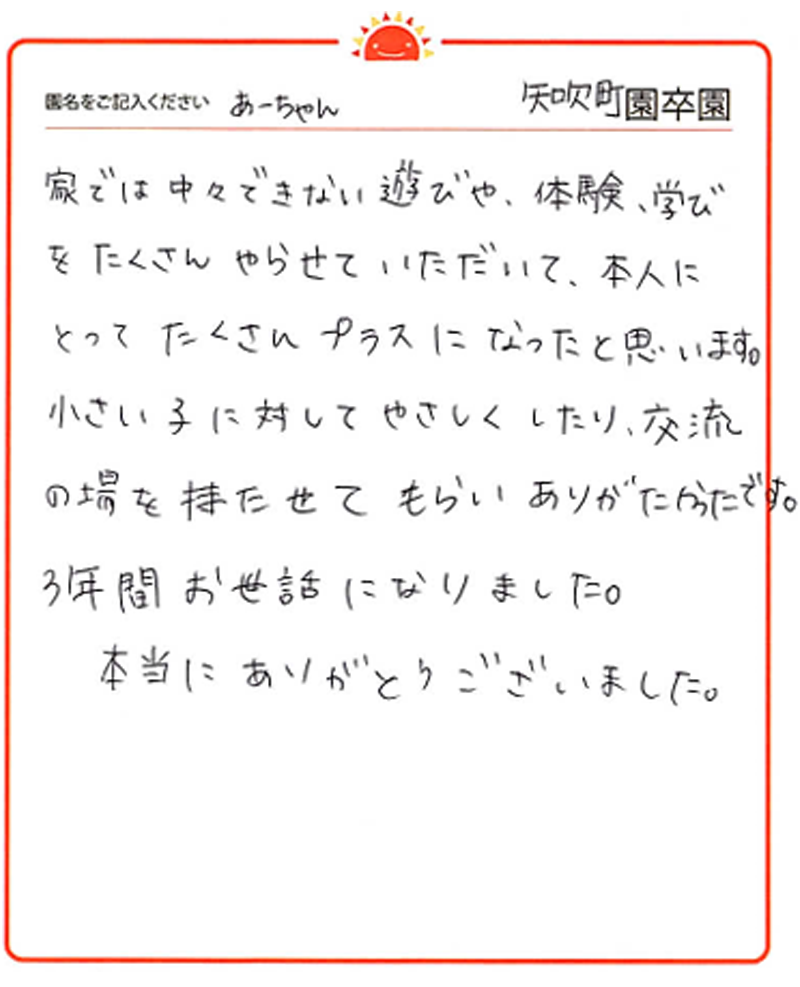 園名をご記入ください あーちゃん 矢吹町園卒園
家では中々できない遊びや、体験、学び
をたくさんやらせていただいて、本人に
とってたくさんプラスになったと思います。
小さい子に対してやさしくしたり、交流
の場を持たせてもらいありがたかったです。
3年間お世話になりました。
本当にありがとうございました。